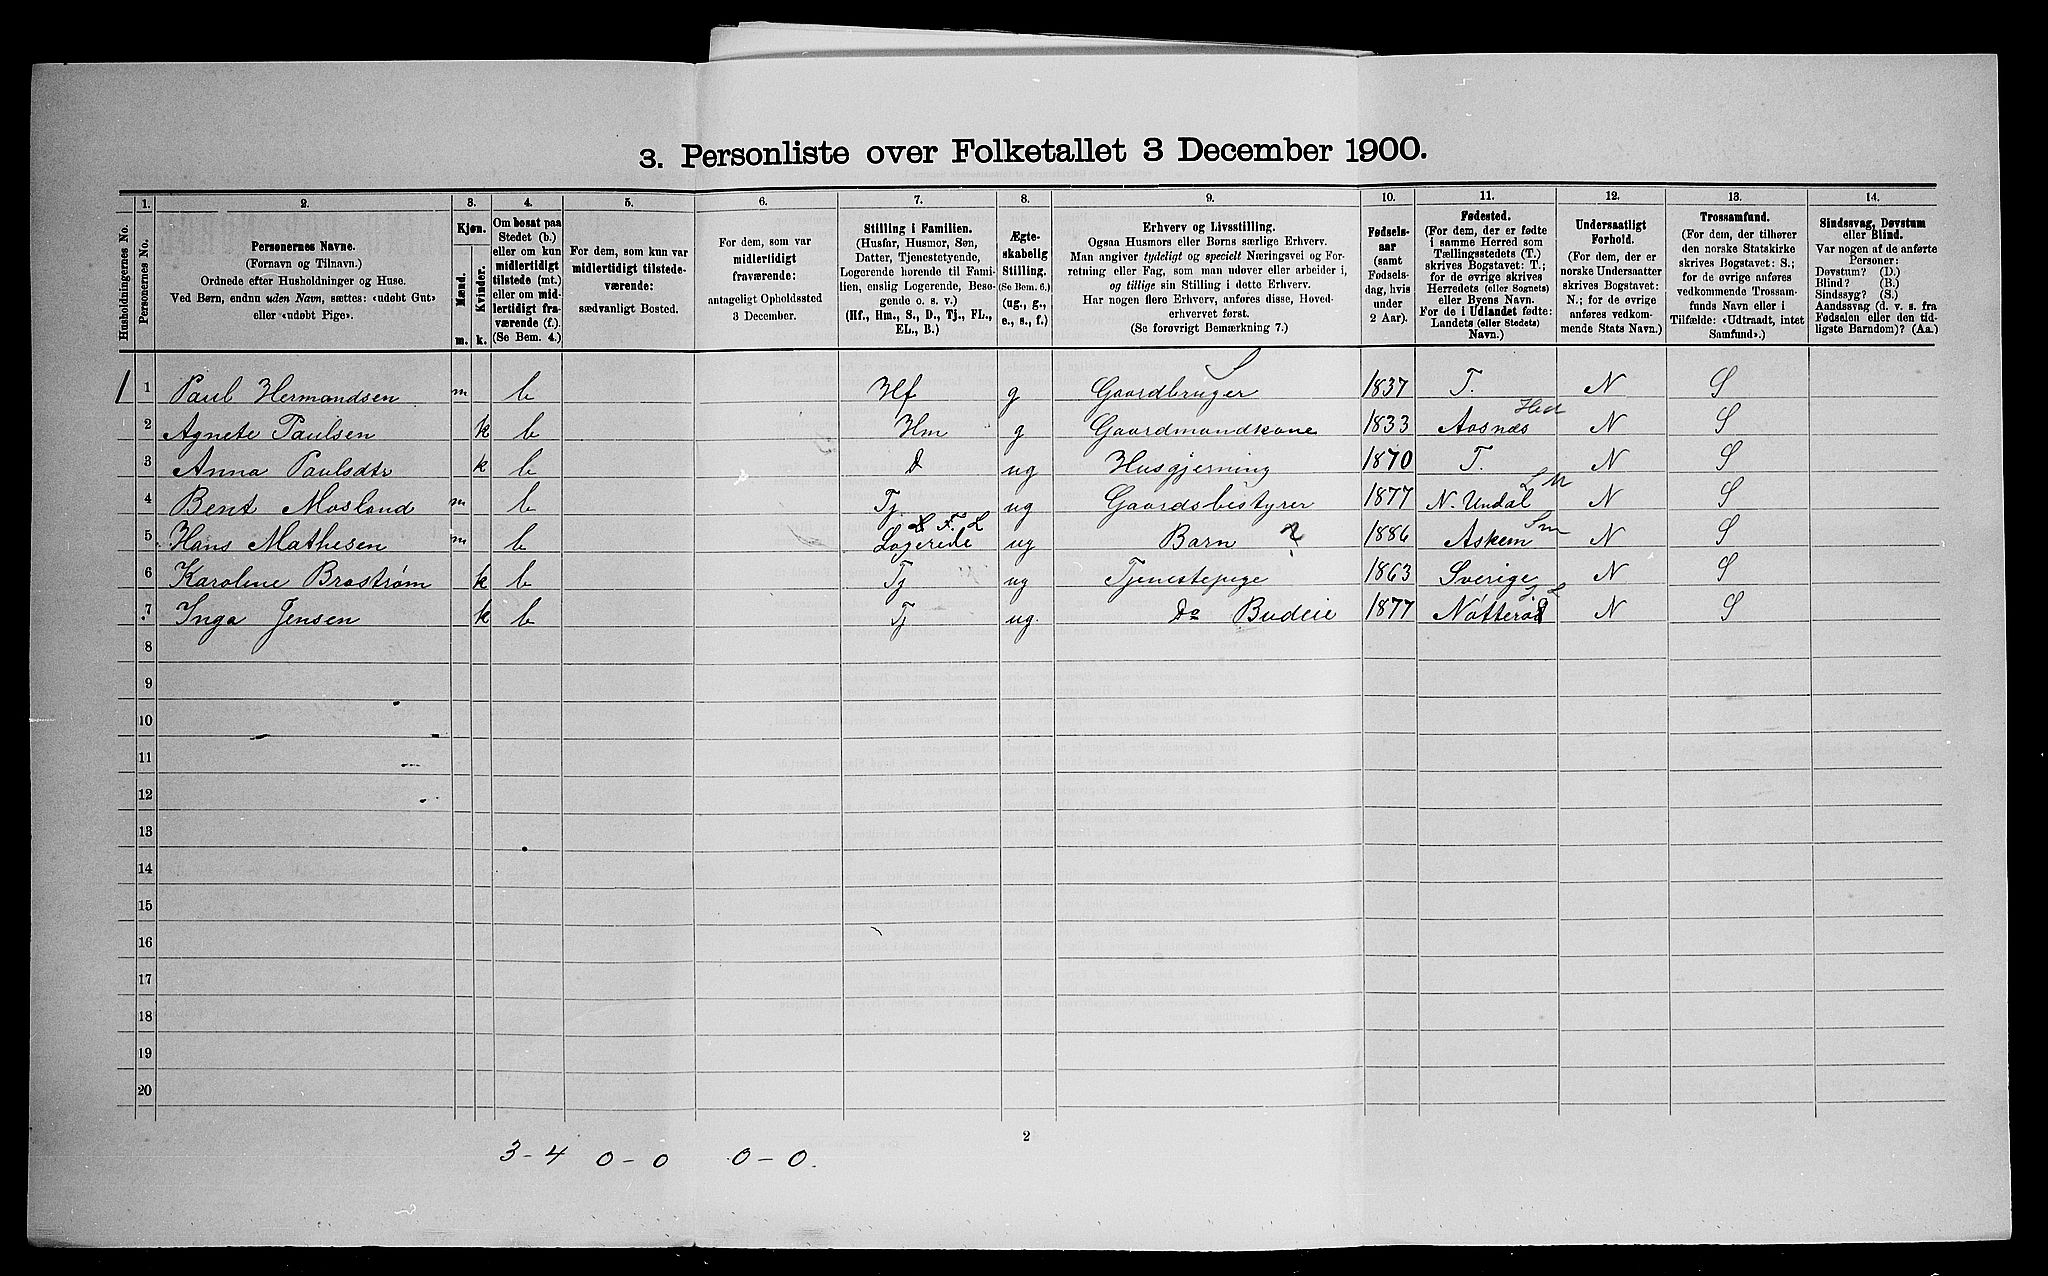 3. Personliste over Folketallet 3 December 1900.
Husholdningernes No.
1. Personernes No.
2. Personernes Navne.
(Fornavn og Tilnavn.)
Ordnede efter Husholdninger og Huse.
Ved Børn, endnu uden Navn, sættes: «udøbt Gut»
eller «udøbt Pige».
3. Kjøn.
Mænd. m.
Kvinder. k.
4. Om bosat paa
Stedet (b.)
eller om kun
midlertidigt
tilstede (mt.)
eller om mid-
lertidigt fra-
værende (f.)
(Se Bem. 4.)
5. For dem, som kun var
midlertidigt tilstede-
værende:
sædvanligt Bosted.
6. For dem, som var
midlertidigt
fraværende:
antageligt Opholdssted
3 December.
7. Stilling i Familien.
(Husfar, Husmor, Søn,
Datter, Tjenestetyende,
Logerende hørende til Fami-
lien, enslig Logerende, Besø-
gende o. s. v.)
(Hf., Hm., S., D., Tj., FL.,
EL., B.)
8. Ægte-
skabelig
Stilling.
(Se Bem. 6.)
(ug., g.,
e., s., f.)
9. Erhverv og Livsstilling.
Ogsaa Husmors eller Børns særlige Erhverv.
Man angiver tydeligt og specielt Næringsvei og For-
retning eller Fag, som man udøver eller arbeider i,
og tillige sin Stilling i dette Erhverv.
Har nogen flere Erhverv, anføres disse, Hoved-
erhvervet først.
(Se forøvrigt Bemærkning 7.)
10. Fødsels-
aar
(samt
Fødsels-
dag, hvis
under
2 Aar).
11. Fødested.
(For dem, der er fødte
i samme Herred som
Tællingsstedets (T.)
skrives Bogstavet: T.;
for de øvrige skrives
Herredets (eller Sognets)
eller Byens Navn.
For de i Udlandet fødte:
Landets (eller Stedets)
Navn.)
12. Undersaatligt
Forhold.
(For dem, der er
norske Undersaatter
skrives Bogstavet:
N.; for de øvrige
anføres vedkom-
mende Stats Navn.)
13. Trossamfund.
(For dem, der tilhører
den norske Statskirke
skrives Bogstavet: S.;
for de øvrige anføres
vedkommende Trossam-
funds Navn eller i
Tilfælde: «Udtraadt, intet
Samfund».)
14. Sindssvag, Døvstum
eller Blind.
Var nogen af de anførte
Personer:
Døvstum? (D.)
Blind? (B.)
Sindssyg? (S.)
Aandssvag (d. v. s. fra
Fødselen eller den tid-
ligste Barndom)? (Aa.)
1 1 Paul Hermandsen m b Hf g Gaardbruger S 1837 T. N S
2 Agnete Paulsen k b Hm g Gaardmandkone 1833 Aasnæs Hed N S
3 Anna Paulsdtr k b D ug Husgjerning 1870 T. N S
4 Bent Mosland m b Tj ug Gaardsbestyrer 1877 N. Undal L M N S
5 Hans Mathesen m b Logerede F. L ug Barn ? 1886 Askem Sm N S
6 Karoline Brostrøm k b Tj ug Tjenestepige 1863 Sverige N S
7 Inga Jensen k b Tj ug. Do Budeie 1877 Nøtterø N S
8
9
10
11
12
13
14
15
16
17
18
19
20
2
3-4 0-0 0-0.